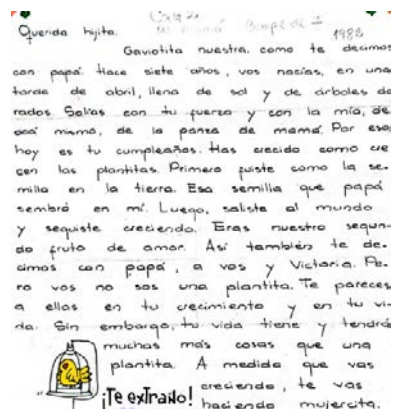 Querida hijita:
1982
Gaviotita nuestra, como te decimos
con papá. Hace siete años, vos nacías, en una
tarde de abril, llena de sol y de árboles do
rados. Salías con tu fuerza y con la mía, de
acá mismo, de la panza de mamá. Por eso,
hoy es tu cumpleaños. Has crecido como cre
cen las plantitas. Primero fuiste como la se-
milla en la tierra. Esa semilla que papá
sembró en mí. Luego, saliste al mundo
y seguiste creciendo. Eras nuestro segun-
do fruto de amor. Así también te de-
cimos con papá, a vos y Victoria. Pe-
ro vos no sos una plantita. Te pareces
a ellas en tu crecimiento y en tu vi-
da. Sin embargo, tu vida tiene y tendrá
muchas más cosas que una
plantita. A medida que vas
creciendo, te vas
¡Te extraño! haciendo mujercita.